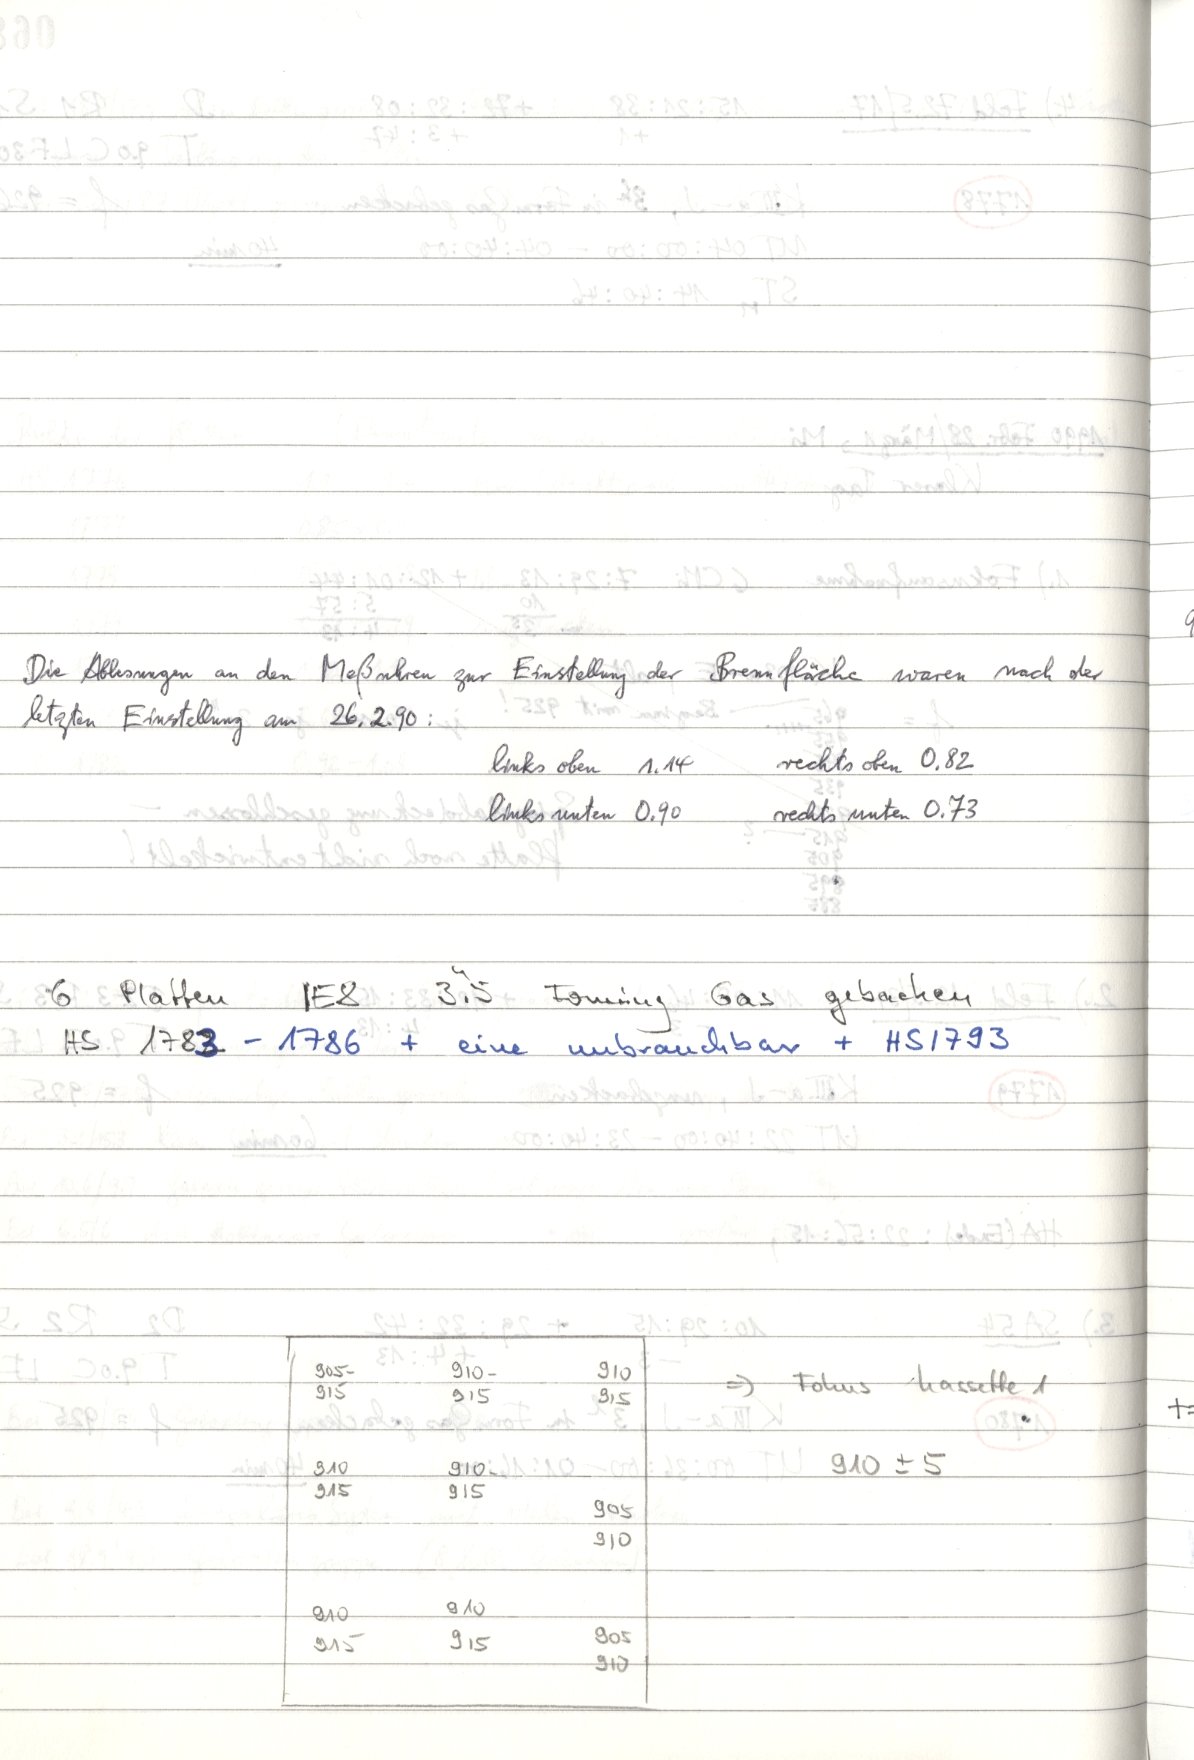 Die Ablesungen an den Meßuhren zur Einstellung der Brennfläche waren nach der
letzten Einstellung am 26.2.90:
links oben 1.14 rechts oben 0.82
links unten 0.90 rechts unten 0.73
6 Platten IE8 3.5 Forming Gas gebacken
HS 1783 - 1786 + eine unbrauchbar + HS1793
905- 910- 910
915 915 915
⇒ Fokus Kassette 1
910 910-
915 915
910 ± 5
905
910
910 910
915 915 905
910